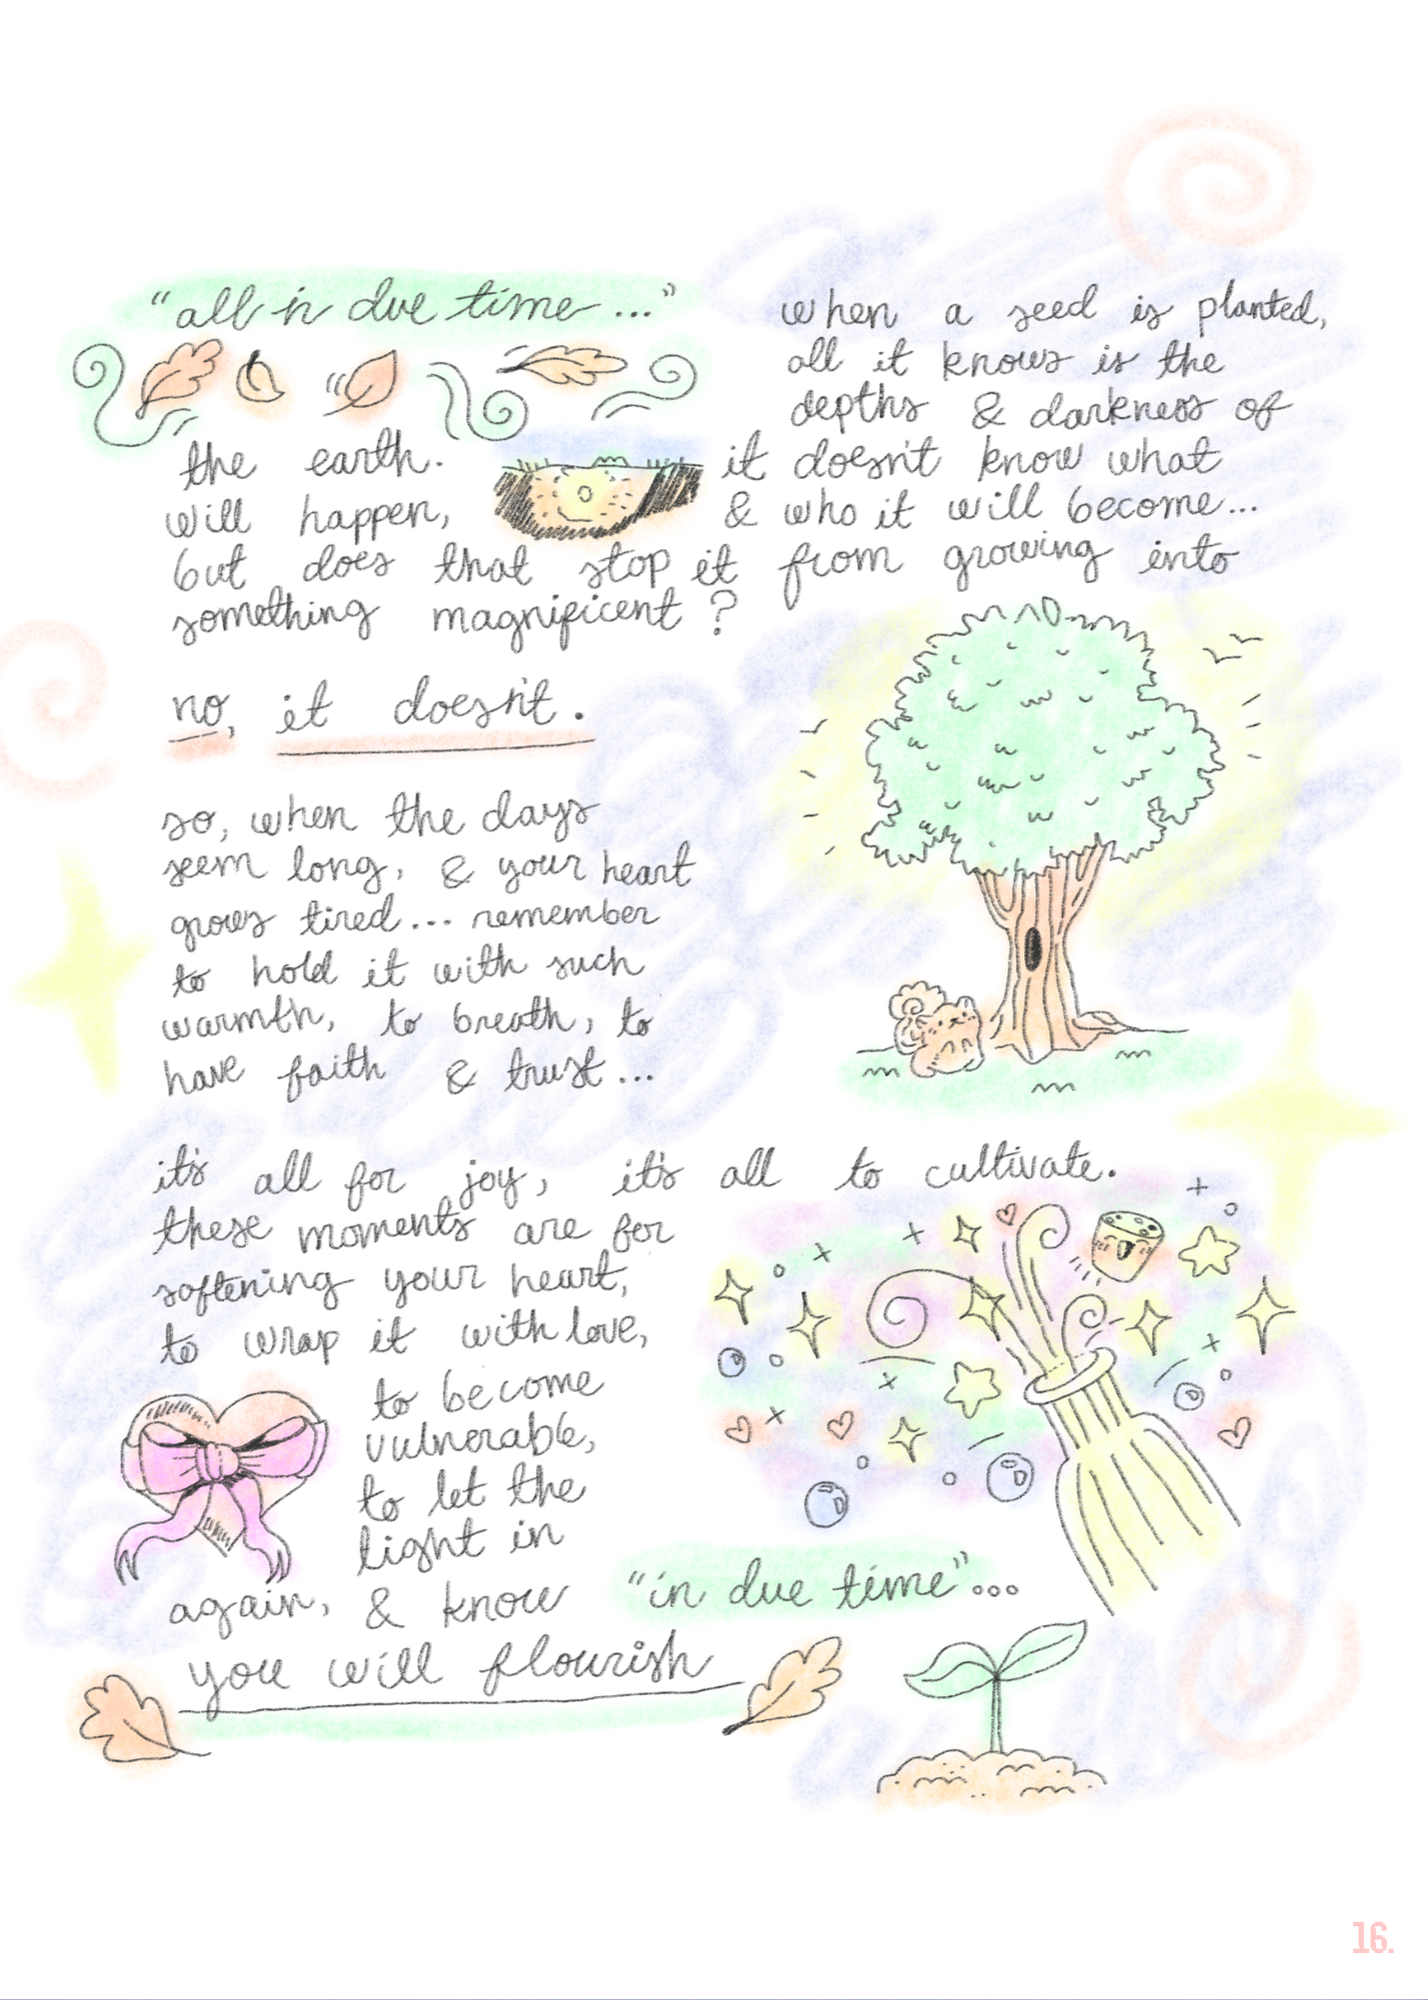 “all in due time...”
when a seed is planted,
all it knows is the
depths & darkness of
the earth. it doesn't know what
will happen, & who it will become...
but does that stop it from growing into
something magnificent?
no, it doesn't.
so, when the days
seem long, & your heart
grows tired... remember
to hold it with such
warmth, to breath, to
have faith & trust...
it's all for joy, it's all to cultivate.
these moments are for
softening your heart,
to wrap it with love,
to become
vulnerable,
to let the
light in
again, & know “in due time”...
you will flourish
16.